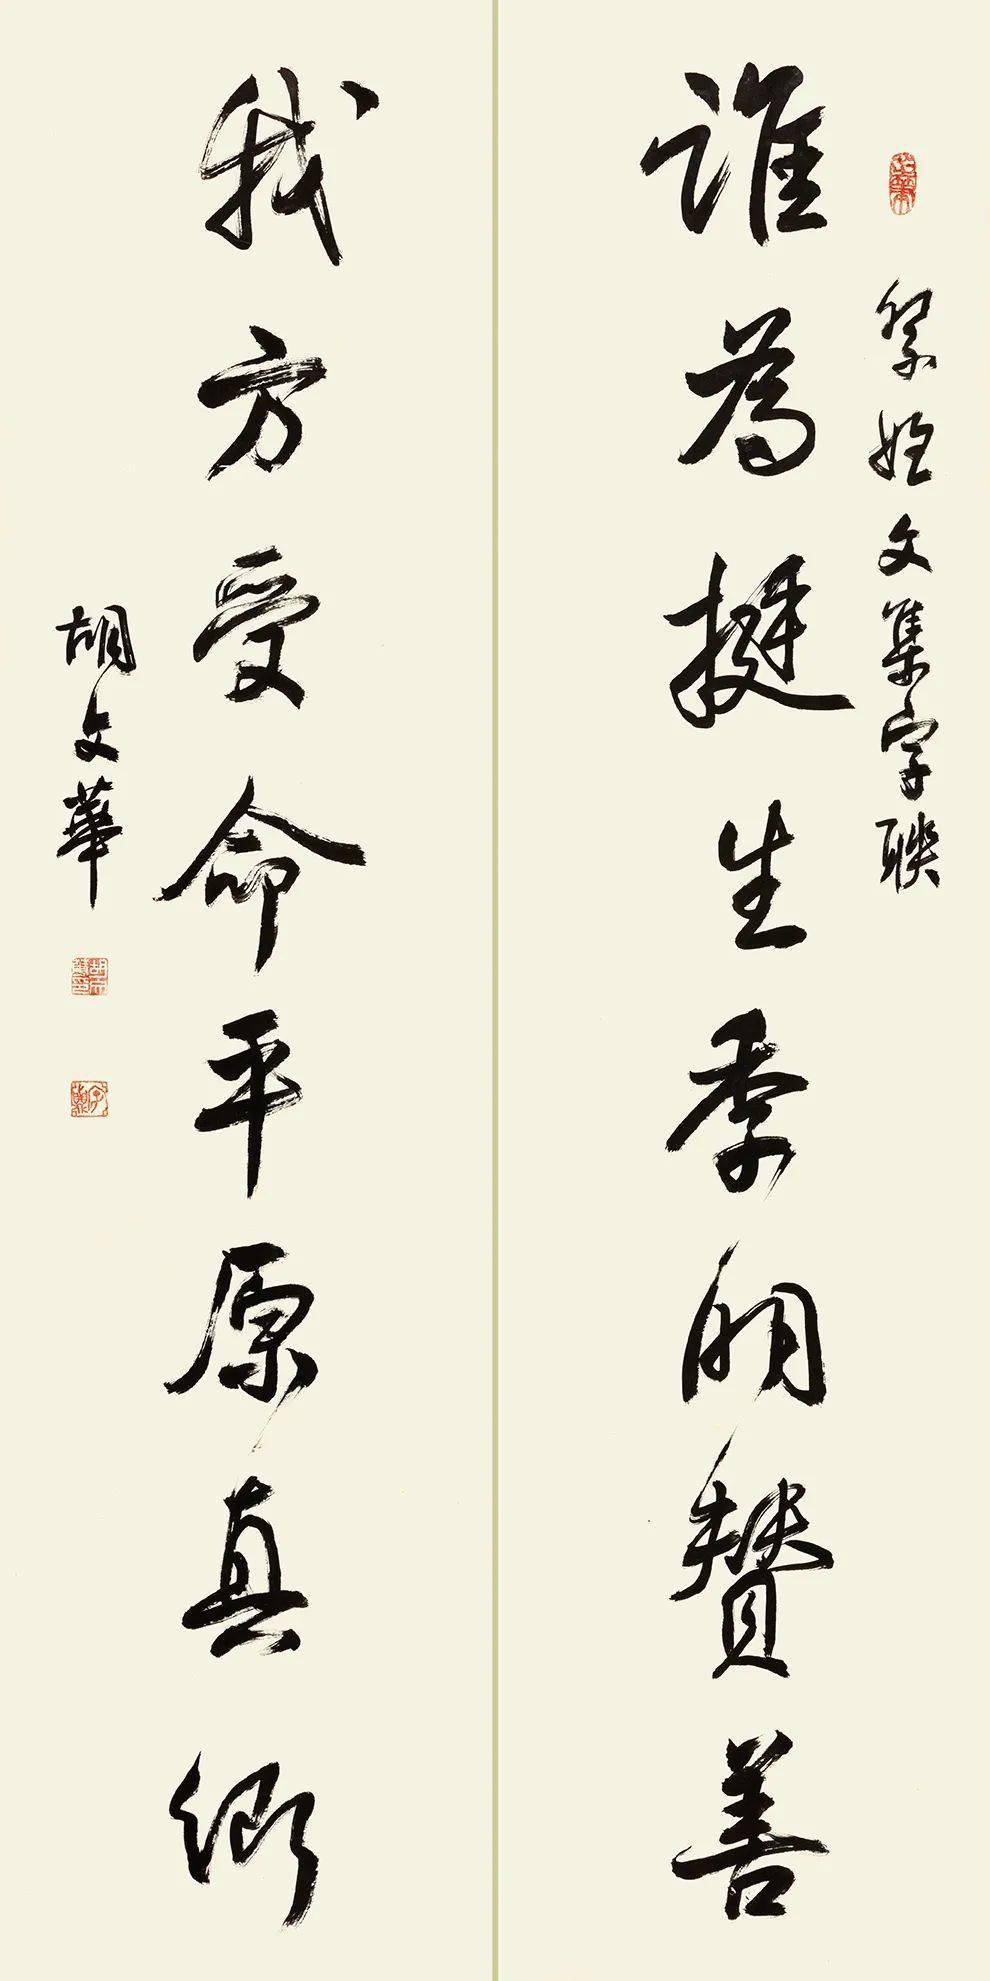 誰為挺生季明贊善
祭姪文集字聯
我方受命平原真卿
胡文華